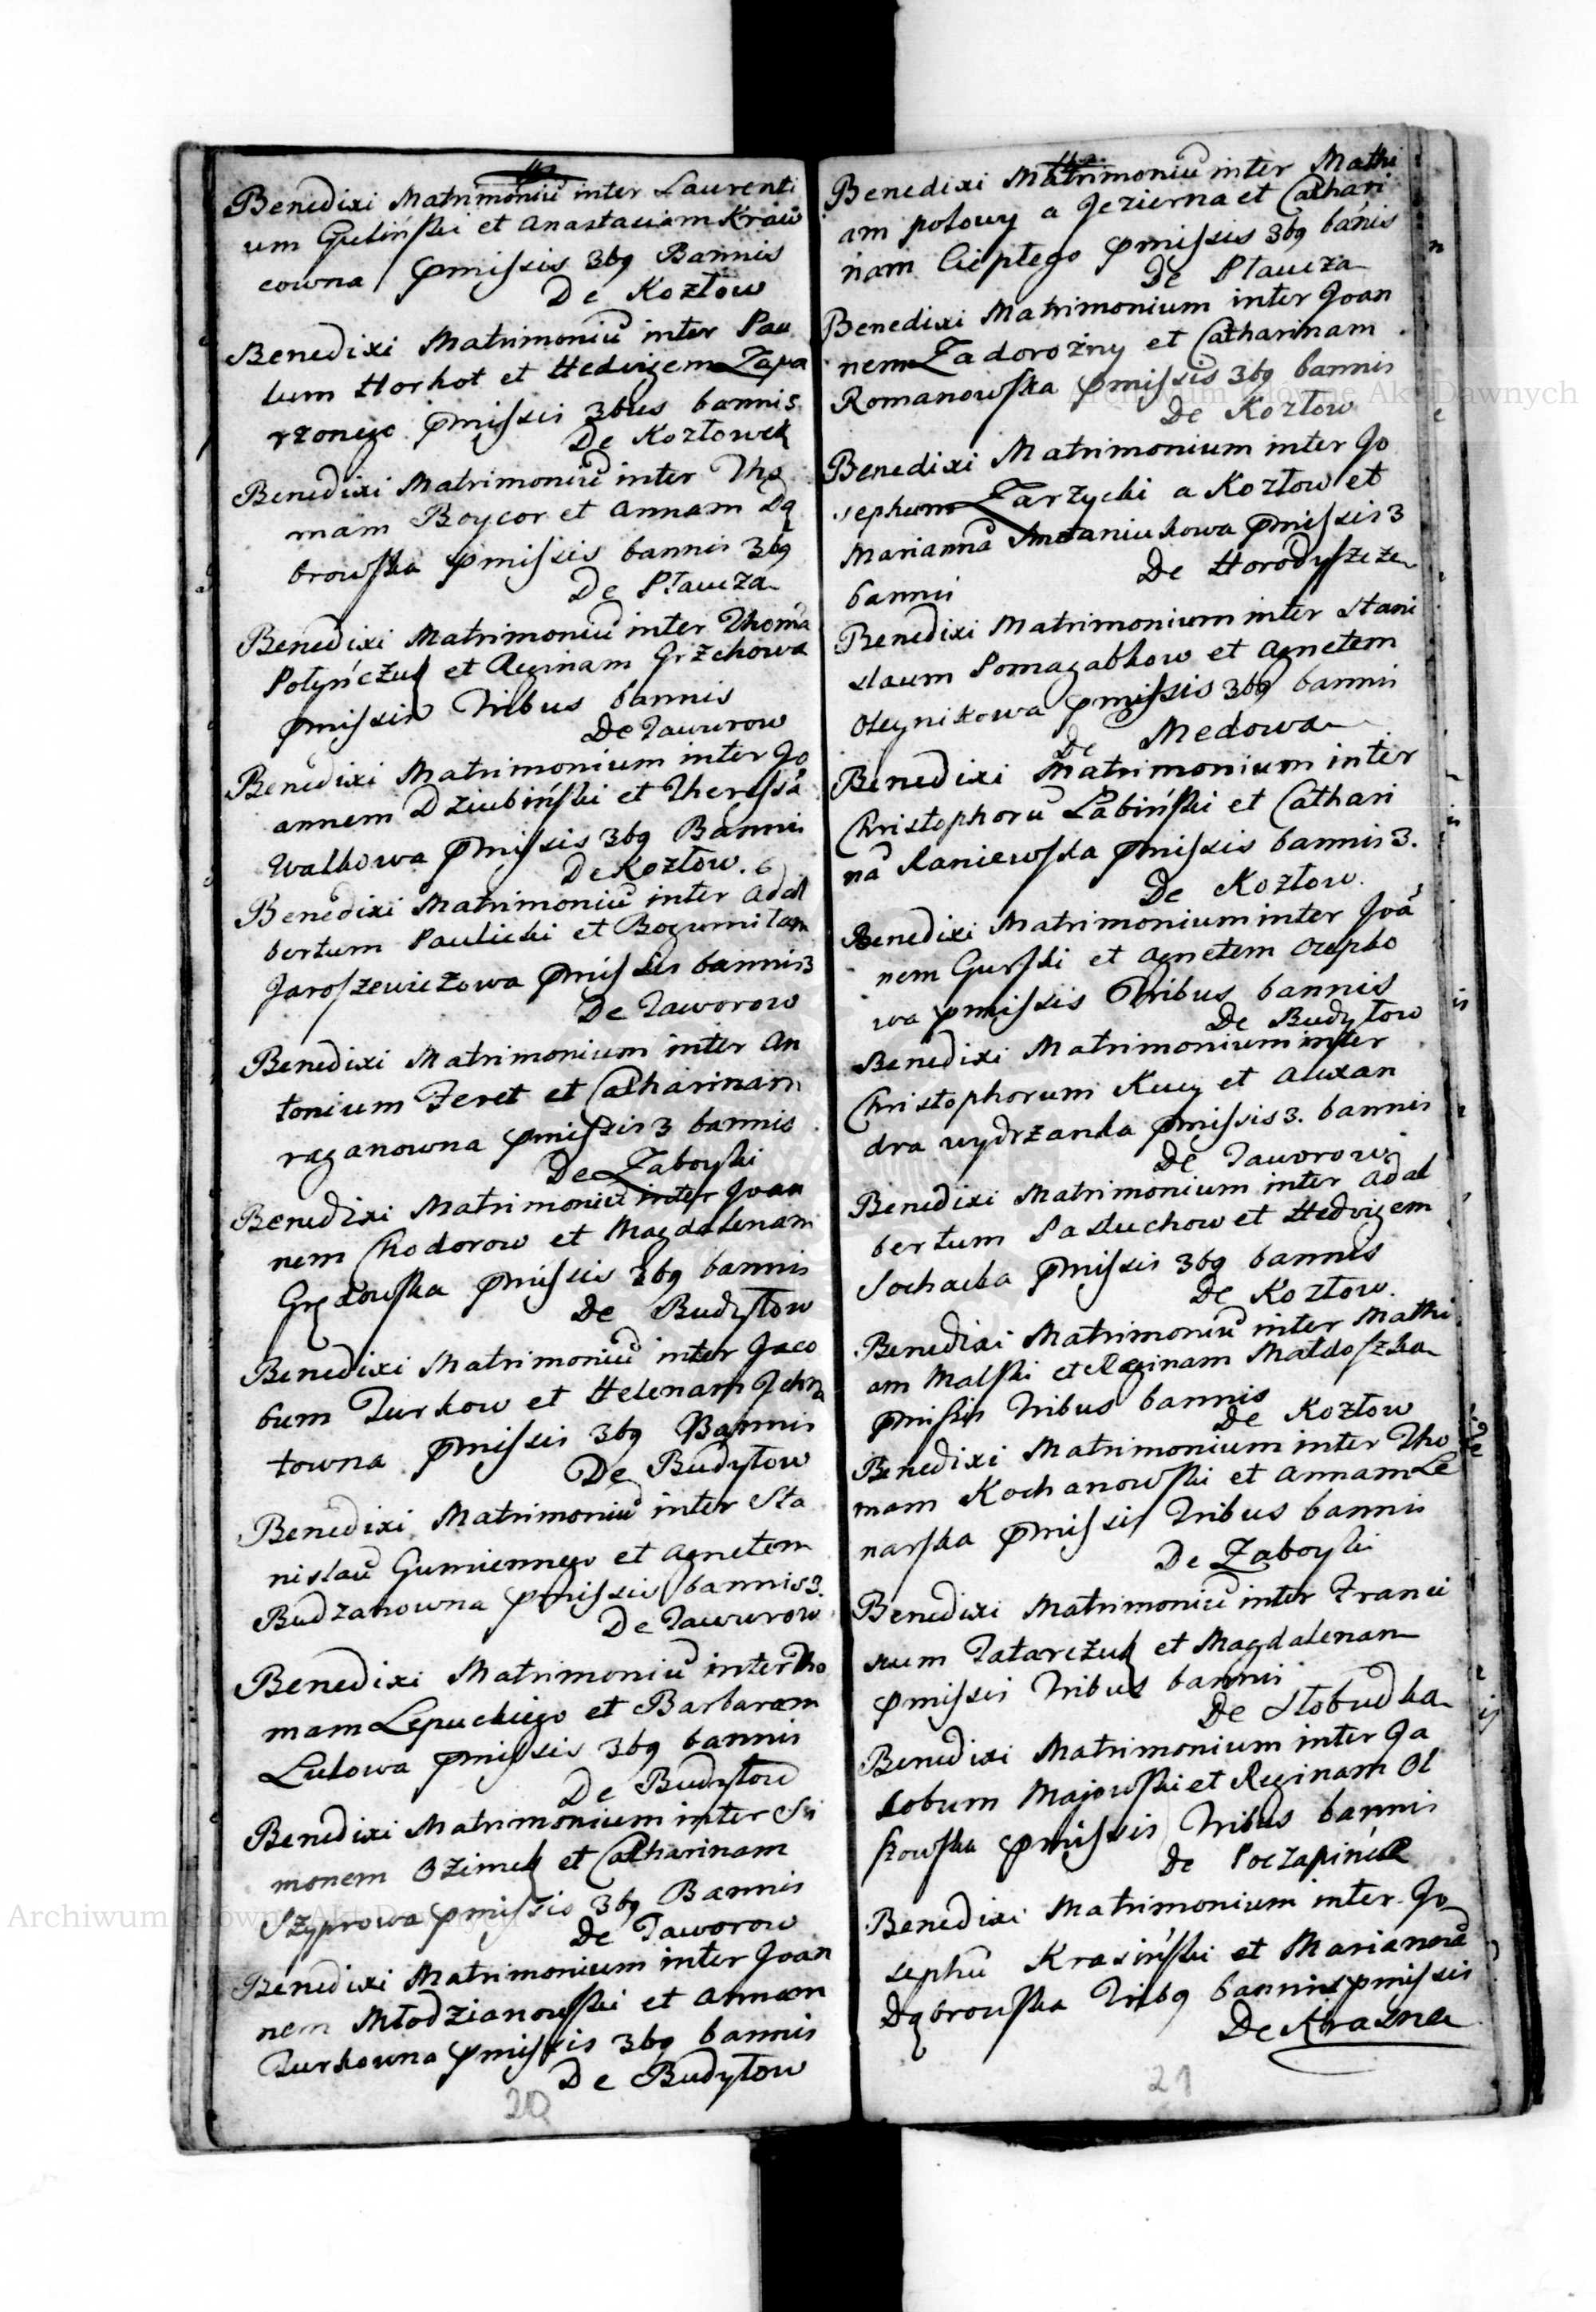 Benedixi Matrimoniũ inter Laurenti
um Guliński et Anastasiam Kraw
cowna pmissis 3bq Bannis
De Kozłow
Benedixi Matrimoniũ inter Pau
lum Horhot et Hedvigem Zapa
rzonego pmissis 3bus bannis
De Kozłowek
Benedixi Matrimoniũ inter Tho
mam Boycor et Annam Dą
browska pmissis bannis 3bq
De Płaucza
Benedixi Matrimoniũ inter Thomã
Połyńczuk et Reginam Grzchowa
pmissis Tribus bannis
De Tawurow
Benedixi Matrimonium inter Jo
annem Dziubiński et Theressã
Walkowa pmissis 3bq Bannis
De Kozłow.
Benedixi Matrimoniũ inter Adal
bertum Paulicki et Bogumiłam
Jaroszewiczowa pmissis bannis 3
De Taworow
Benedixi Matrimonium inter An
tonium Feret et Catharinam
raganowna pmissis 3 bannis
De Zaboyki
Benedixi Matrimoniũ inter Joan
nem Chodorow et Magdalenam
pmissis 3bq bannis
De Budyłow
Benedixi Matrimoniũ inter Jaco
bum Turkow et Helenam
towna pmissis 3bq Bannis
De Budyłow
Benedixi Matrimoniũ inter Sta
nislaũ Gumiennego et Agnetem
Budzanowna pmissis bannis 3.
De Tawurow
Benedixi Matrimoniũ inter Tho
mam Lepuckiego et Barbaram
Lulowa pmissis 3bq bannis
De Budyłow
Benedixi Matrimonium inter Si
monem Ozimek et Catharinam
Szyprowa pmissis 3bq Bannis
De Taworow
Benedixi Matrimonium inter Joan
nem Młodzianowski et Annam
Turkowna pmissis 3bq bannis
De Budyłow
20
Benedixi Matrimoniũ inter Mathi
am połowy a Jezierna et Cathari
nam Ciepłego pmissis 3bq bãnis
De Płaucza
Benedixi Matrimonium inter Joan
nem Zadorożny et Catharinam
Romanowska pmissis 3bq bannis
De Kozłow
Benedixi Matrimonium inter Jo
sephum Zarzycki a Kozłow et
Mariannã Smetaniukowa pmissis 3
bannis
De Horodyszcze
Benedixi Matrimonium inter Stani
slaum Pomagabkow et Agnetem
Oleynikowa pmissis 3bq bannis
De Medowa
Benedixi Matrimonium inter
Christophorũ Łabiński et Cathari
nã Raniewska pmissis bannis 3.
De Kozłow.
Benedixi Matrimonium inter Joã
nem Gurski et Agnetem
wa pmissis Tribus bannis
De Budyłow
Benedixi Matrimonium inter
Christophorum Kucy et Alexan
dra wydrzanka pmissis 3. bannis
De Taworow
Benedixi Matrimonium inter Adal
bertum Pastuchow et Hedvigem
Sochacka pmissis 3bq bannis
De Kozłow.
Benedixi Matrimoniũ inter Mathi
am Malski et Reginam Maldoszka
pmissis Tribus bannis
De Kozłow
Benedixi Matrimonium inter Tho
mam Kochanowski et Annam Le
narska pmissis Tribus bannis
De Zaboyki
Benedixi Matrimoniũ inter Franci
scum Tatarczuk et Magdalenam
pmissis Tribus bannis
De Słobudka
Benedixi Matrimonium inter Ja
cobum Majowski et Reginam Ol
szowska pmissis Tribus bannis
De Poczapińce
Benedixi Matrimonium inter Jo
sephũ Krasiński et Mariannã
Dąbrowska Tribq bannis pmissis
De Krasne
21
Archiwum Główne Akt Dawnych
Archiwum Główne Akt Dawnych